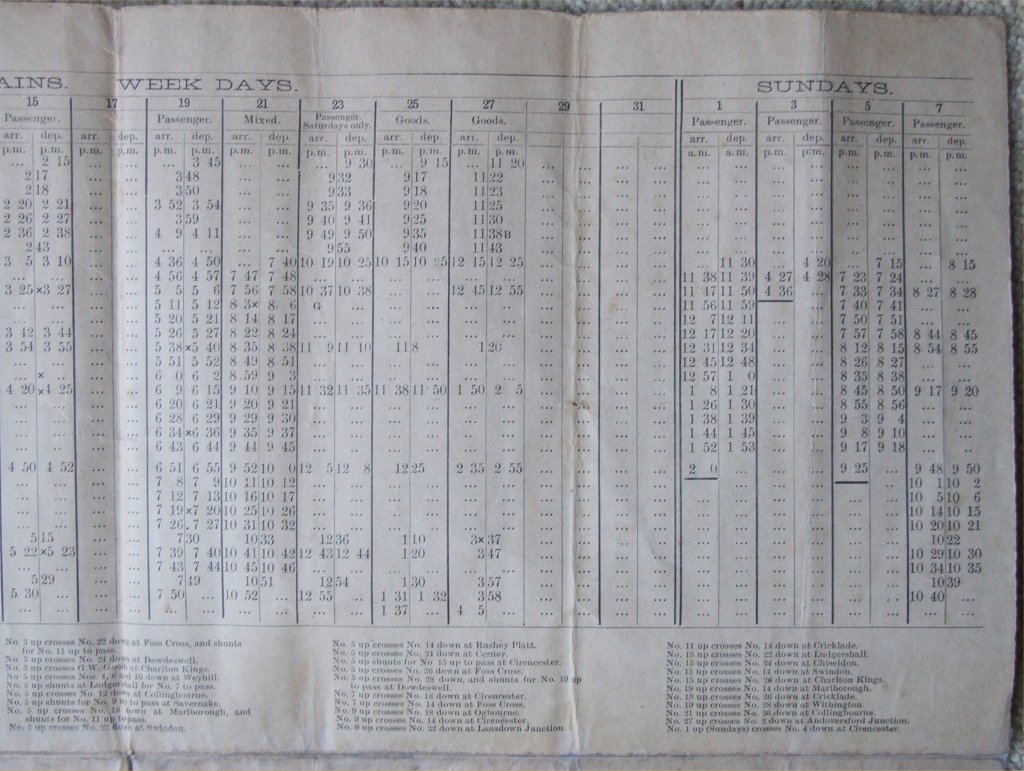 AINS. WEEK DAYS. SUNDAYS.
15 17 19 21 23 25 27 29 31 1 3 5 7
Passenger. Passenger. Mixed. Passenger. Saturdays only. Goods. Goods. Passenger. Passenger. Passenger. Passenger.
arr. dep. arr. dep. arr. dep. arr. dep. arr. dep. arr. dep. arr. dep. arr. dep. arr. dep. arr. dep. arr. dep.
p.m. p.m. p.m. p.m. p.m. p.m. p.m. p.m. p.m. p.m. p.m. p.m. p.m. p.m. a.m. a.m. p.m. p.m. p.m. p.m. p.m. p.m.
... 2 15 ... ... ... 3 45 ... ... ... 9 30 ... 9 15 ... 11 20
2 17 ... ... 3 48 ... ... 9 32 9 17 11 22
2 18 ... ... 3 50 ... ... 9 33 9 18 11 23
2 20 2 21 ... ... 3 52 3 54 ... ... 9 35 9 36 9 20 11 25
2 26 2 27 ... ... 3 59 ... ... 9 40 9 41 9 25 11 30
2 36 2 38 ... ... 4 9 4 11 ... ... 9 49 9 50 9 35 11 38B
2 43 ... ... ... ... ... ... 9 55 9 40 11 43
3 5 3 10 ... ... 4 36 4 50 ... 7 40 10 19 10 25 10 15 10 25 12 15 12 25 ... ... ... ... ... 11 30 ... 4 20 ... 7 15 ... 8 15
... ... ... ... 4 56 4 57 7 47 7 48 ... ... ... ... ... ... ... ... ... ... 11 38 11 39 4 27 4 28 7 23 7 24 ... ...
3 25 × 3 27 ... ... 5 5 5 6 7 56 7 58 10 37 10 38 ... ... 12 45 12 55 ... ... ... ... 11 47 11 50 4 36 ... 7 33 7 34 8 27 8 28
... ... ... ... 5 11 5 12 8 3× 8 6 G ... ... ... ... ... ... ... ... ... 11 56 11 59 ... 7 40 7 41 ... ...
... ... ... ... 5 20 5 21 8 14 8 17 ... ... ... ... ... ... ... ... ... ... 12 7 12 11 ... ... 7 50 7 51 ... ...
3 42 3 44 ... ... 5 26 5 27 8 22 8 24 ... ... ... ... ... ... ... ... ... ... 12 17 12 20 ... ... 7 57 7 58 8 44 8 45
3 54 3 55 ... ... 5 38 × 5 40 8 35 8 38 11 9 11 10 11 8 ... ... ... ... 12 31 12 34 ... ... 8 12 8 15 8 54 8 55
... ... ... ... 5 51 5 52 8 49 8 51 ... ... ... ... ... ... ... ... ... ... 12 45 12 48 ... ... 8 26 8 27 ... ...
... × ... ... 6 0 6 2 8 59 9 3 ... ... ... ... ... ... ... ... ... ... 12 57 1 0 ... ... 8 35 8 38 ... ...
4 20 × 4 25 ... ... 6 9 6 15 9 10 9 15 11 32 11 35 11 38 11 50 1 50 2 5 ... ... ... ... 1 8 1 21 ... ... 8 45 8 50 9 17 9 20
... ... ... ... 6 20 6 21 9 20 9 21 ... ... ... ... ... ... ... ... ... ... 1 26 1 30 ... ... 8 55 8 56 ... ...
... ... ... ... 6 28 6 29 9 29 9 30 ... ... ... ... ... ... ... ... ... ... 1 38 1 39 ... ... 9 3 9 4 ... ...
... ... ... ... 6 34 × 6 36 9 35 9 37 ... ... ... ... ... ... ... ... ... ... 1 44 1 45 ... ... 9 8 9 10 ... ...
... ... ... ... 6 43 6 44 9 44 9 45 ... ... ... ... ... ... ... ... ... ... 1 52 1 53 ... ... 9 17 9 18 ... ...
4 50 4 52 ... ... 6 51 6 55 9 52 10 0 12 5 12 8 12 25 2 35 2 55 ... ... ... ... 2 0 ... ... ... 9 25 ... 9 48 9 50
... ... ... ... 7 8 7 9 10 11 10 12 ... ... ... ... ... ... ... ... ... ... ... ... ... ... 10 1 10 2
... ... ... ... 7 12 7 13 10 16 10 17 ... ... ... ... ... ... ... ... ... ... ... ... ... ... ... ... 10 5 10 6
... ... ... ... 7 19 × 7 20 10 25 10 26 ... ... ... ... ... ... ... ... ... ... ... ... ... ... ... ... 10 14 10 15
... ... ... ... 7 26 7 27 10 31 10 32 ... ... ... ... ... ... ... ... ... ... ... ... ... ... ... ... 10 20 10 21
5 15 ... ... 7 30 10 33 12 36 1 10 3×37 ... ... ... ... ... ... ... ... ... ... 10 22
5 22 × 5 23 ... ... 7 39 7 40 10 41 10 42 12 43 12 44 1 20 3 47 ... ... ... ... ... ... ... ... ... ... 10 29 10 30
... ... ... ... 7 43 7 44 10 45 10 46 ... ... ... ... ... ... ... ... ... ... ... ... ... ... ... ... 10 34 10 35
5 29 ... ... 7 49 10 51 12 54 1 30 3 57 ... ... ... ... ... ... ... ... ... ... 10 39
5 30 ... ... ... 7 50 ... 10 52 ... 12 55 ... 1 31 1 32 3 58 ... ... ... ... ... ... ... ... ... ... 10 40 ...
... ... ... ... ... ... ... ... ... ... 1 37 ... 4 5 ... ... ... ... ... ... ... ... ... ... ... ... ...
No. 3 up crosses No. 22 down at Foss Cross, and shunts
for No. 11 up to pass.
No. 3 up crosses No. 24 down at Dowdeswell.
No. 3 up crosses G.W. Goods at Charlton Kings.
No. 5 up crosses Nos. 4, 6 and 16 down at Weyhill.
No. 5 up shunts at Ludgershall for No. 7 to pass.
No. 5 up crosses No. 12 down at Collingbourne.
No. 5 up shunts for No. 9 to pass at Savernake.
No. 5 up crosses No. 18 down at Marlborough, and
shunts for No. 11 up to pass.
No. 5 up crosses No. 22 down at Swindon.
No. 5 up crosses No. 14 down at Rushey Platt.
No. 5 up crosses No. 24 down at Cerney.
No. 5 up shunts for No 15 up to pass at Cirencester.
No. 5 up crosses No. 26 down at Foss Cross.
No. 5 up crosses No. 28 down, and shunts for No. 19 up
to pass at Dowdeswell.
No. 7 up crosses No. 18 down at Cirencester.
No. 7 up crosses No. 14 down at Foss Cross.
No. 9 up crosses No. 18 down at Ogbourne.
No. 9 up crosses No. 14 down at Cirencester.
No. 9 up crosses No. 22 down at Lansdown Junction.
No. 11 up crosses No. 14 down at Cricklade.
No. 15 up crosses No. 22 down at Ludgershall.
No. 15 up crosses No. 24 down at Chiseldon.
No. 15 up crosses No. 14 down at Swindon.
No. 15 up crosses No. 26 down at Charlton Kings.
No. 19 up crosses No. 14 down at Marlborough.
No. 19 up crosses No. 26 down at Cricklade.
No. 19 up crosses No. 28 down at Withington.
No. 21 up crosses No. 26 down at Collingbourne.
No. 27 up crosses No. 2 down at Andoversford Junction.
No. 1 up (Sundays) crosses No. 4 down at Cirencester.